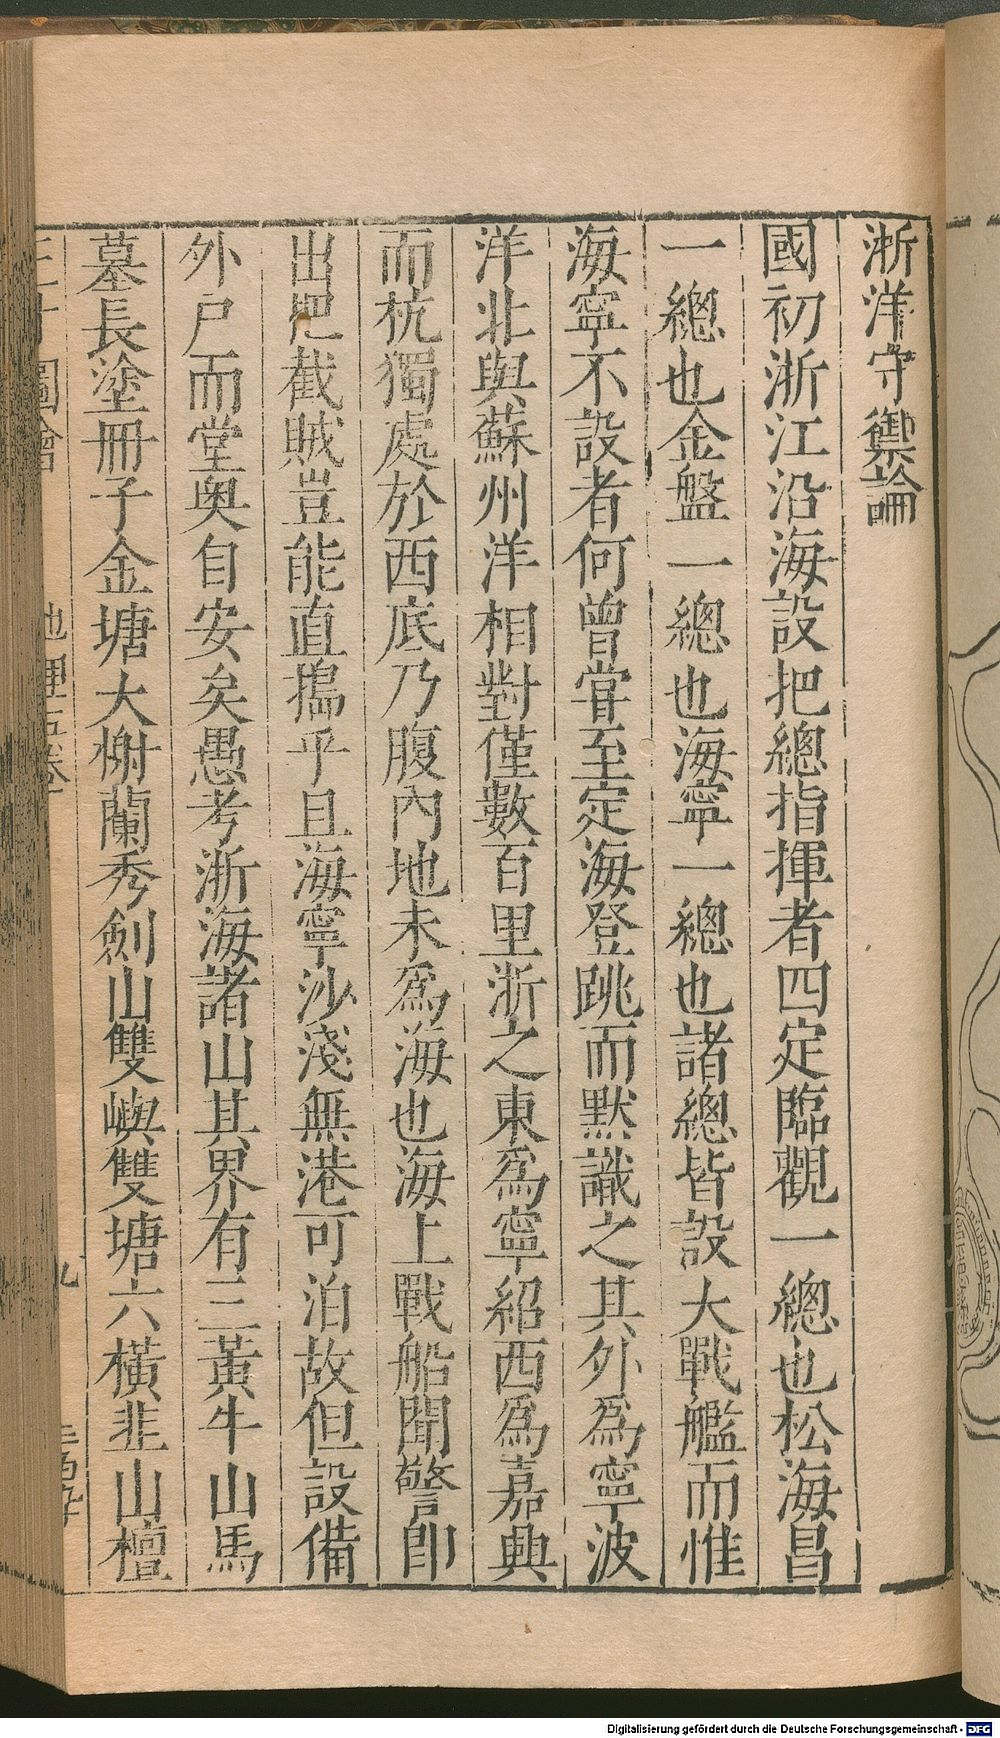 浙洋守禦論
國初浙江沿海設把總指揮者四定臨觀一總也松海昌
一總也金盤一總也海寧一總也諸總皆設大戰艦而惟
海寧不設者何曾嘗至定海登跳而默識之其外為寧波
洋北與蘇州洋相對僅數百里浙之東為寧紹西為嘉興
而杭獨處於西底乃腹內地未為海也海上戰船聞警即
出𫵷截賊豈能直搗乎且海寧沙淺無港可泊故但設備
外戶而堂奧自安矣愚考浙海諸山其界有三黃牛山馬
墓長塗冊子金塘大榭蘭秀劍山雙嶼雙塘六橫韭山檀
三才圖會
地理五卷
九
Digitalisierung gefördert durch die Deutsche Forschungsgemeinschaft - DFG